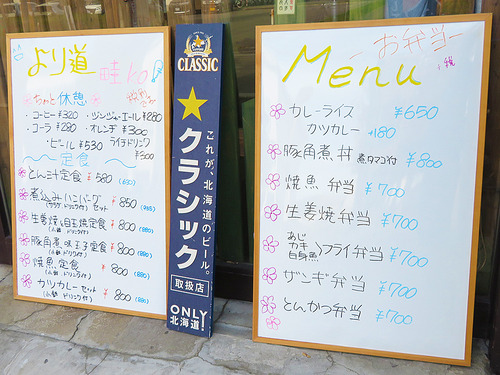 より道
畦ho
ちょっと休憩
・コーヒー ¥320 ・ジンジャーエール ¥280
・コーラ ¥280 ・オレンヂ ¥300
・ビール ¥530
¥300
定食
とん汁定食 ¥580 (630)
煮込みハンバーグ セット ¥850 (935)
生姜焼き目玉焼定食 ¥800 (880)
豚角煮味玉子定食 ¥800 (880)
焼魚定食 ¥800 (880)
カツカレーセット ¥800 (880)
CLASSIC
クラシック
これが、北海道のビール。
取扱店
ONLY
北海道!
お弁当
Menu
カレーライス ¥650
カツカレー +180
豚角煮丼 煮タマゴ付 ¥800
焼魚弁当 ¥700
生姜焼弁当 ¥700
あじ
カキ フライ弁当 ¥700
白身魚
ザンギ弁当 ¥700
とんかつ弁当 ¥700